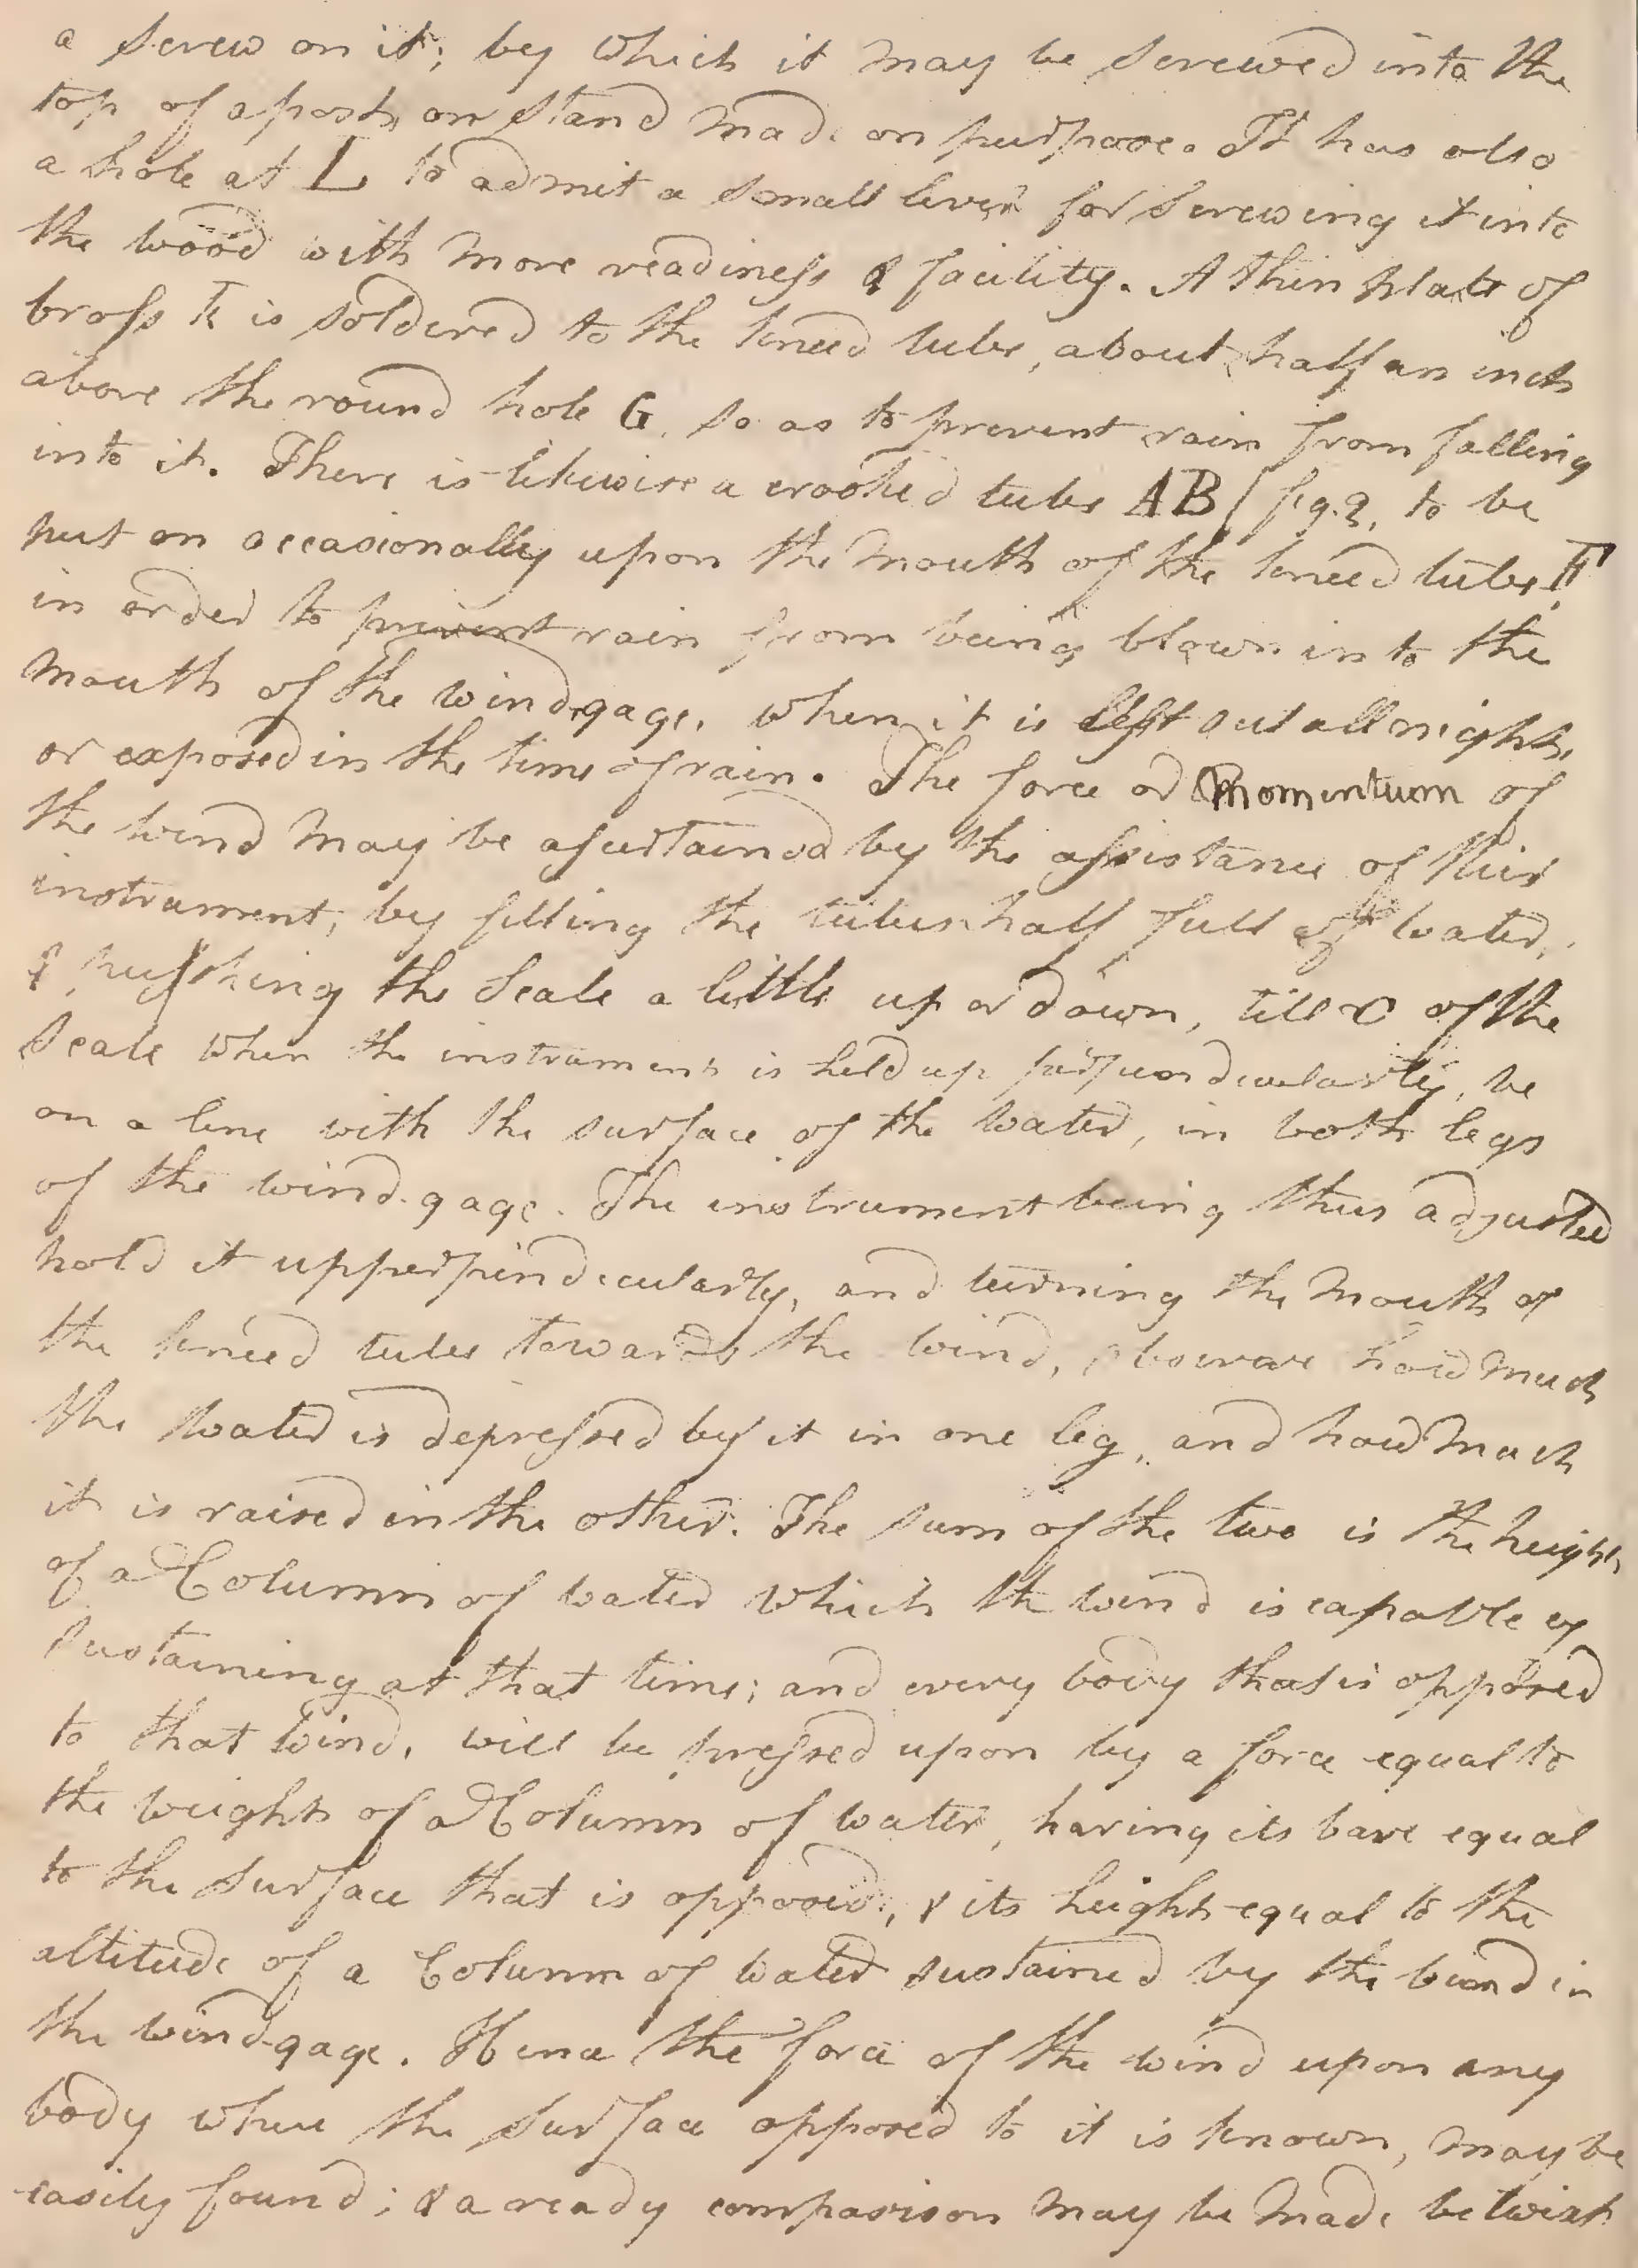 a screw on it; by which it may be screwed into the
top of a post, or stand made on purpose. It has also
a hole at L to admit a small lever for screwing it into
the wood with more readiness & facility. A thin plate of
brass k is soldered to the kneed tube, about half an inch
above the round hole G, so as to prevent rain from falling
into it. There is likewise a crooked tube AB (fig. 2, to be
put on occasionally upon the mouth of the kneed tube F,
in order to prevent rain from being blown into the
mouth of the wind-gage, when it is left out all night,
or exposed in the time of rain. The force or Momentum of
the wind may be assertained by the assistance of this
instrument, by filling the tubes half full of water,
& pushing the Scale a little up or down, till o of the
Scale when the instrument is held up perpendicularly, be
on a line with the surface of the water, in both legs
of the wind-gage. The instrument being thus adjusted
hold it up perpindicularly, and turning the mouth of
the kneed tube towards the wind, observe how much
the water is depressed by it in one leg, and how much
it is raised in the other. The sum of the two is the height
of a Column of water which the wind is capable of
sustaining at that time; and every body that is opposed
to that wind, will be pressed upon by a force equal to
the weight of a Column of water, having its base equal
to the surface that is opposed, & its height equal to the
altitude of a Column of water sustained by the wind in
the wind-gage. Hence the force of the wind upon any
body where the surface opposed to it is known, may be
easily found; & a ready comparison may be made betwixt